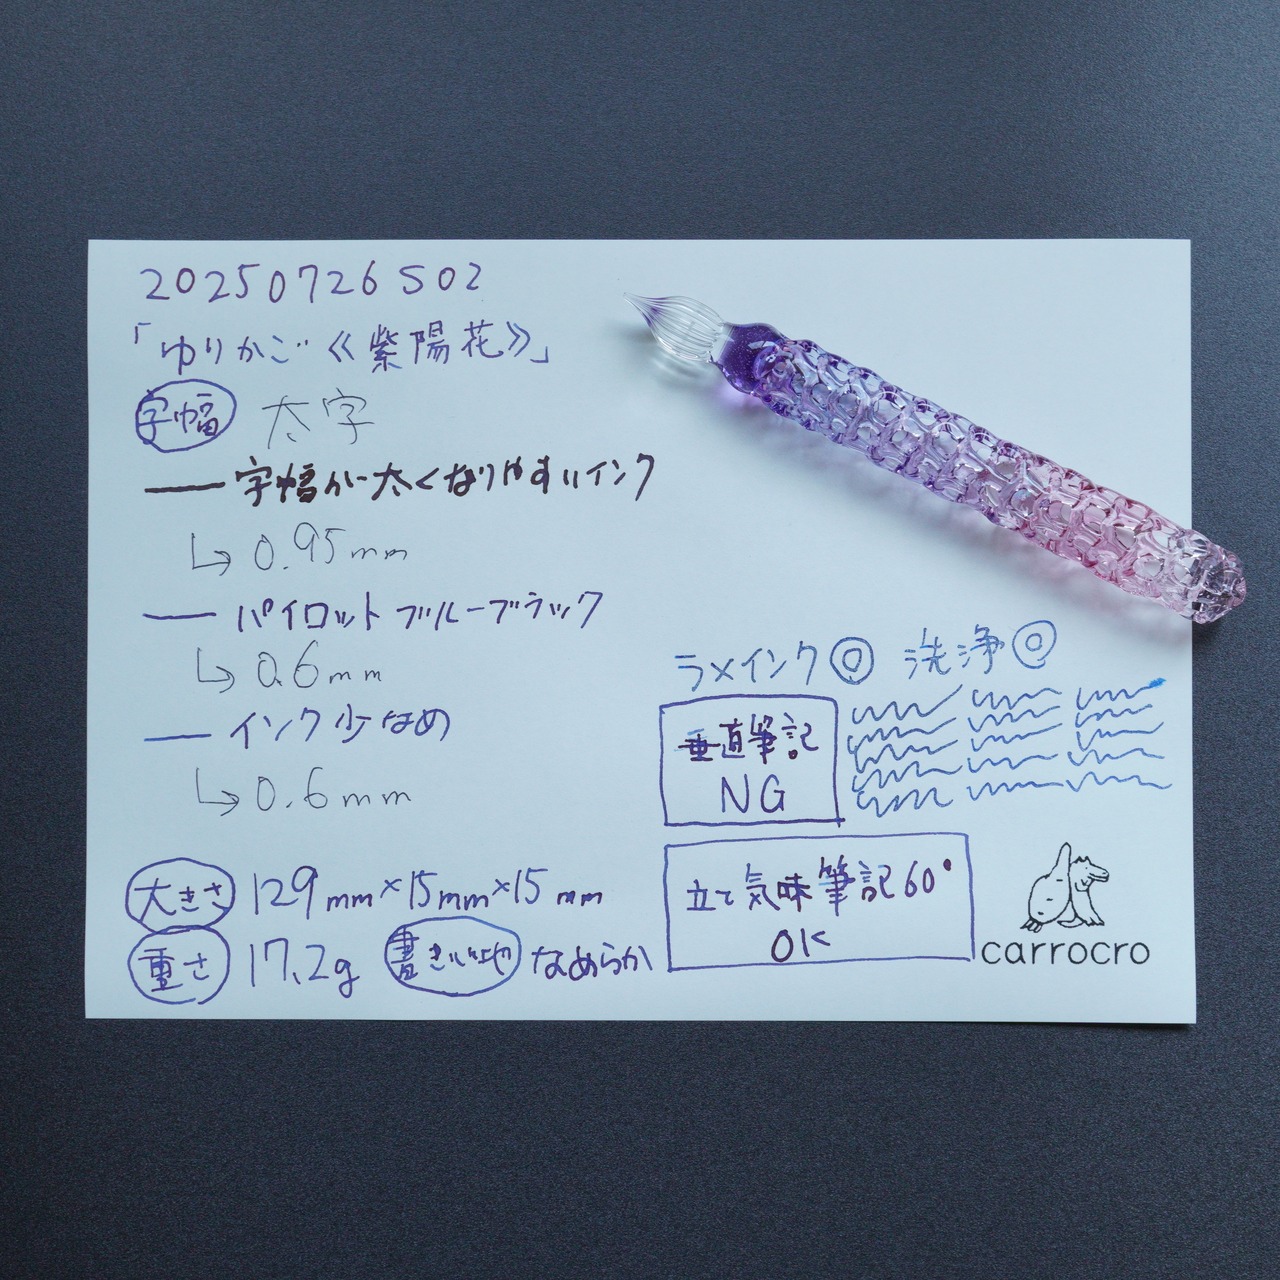 20250726S02
「ゆりかご《紫陽花》」
字幅 太字
字幅が太くなりやすいインク
0.95mm
パイロットブルーブラック
0.6mm
インク少なめ
0.6mm
大きさ 129mm×15mm×15mm
重さ 17.2g 書き心地 なめらか
ラメインク◎ 洗浄◎
垂直筆記
NG
立て気味筆記60°
OK
carrocro